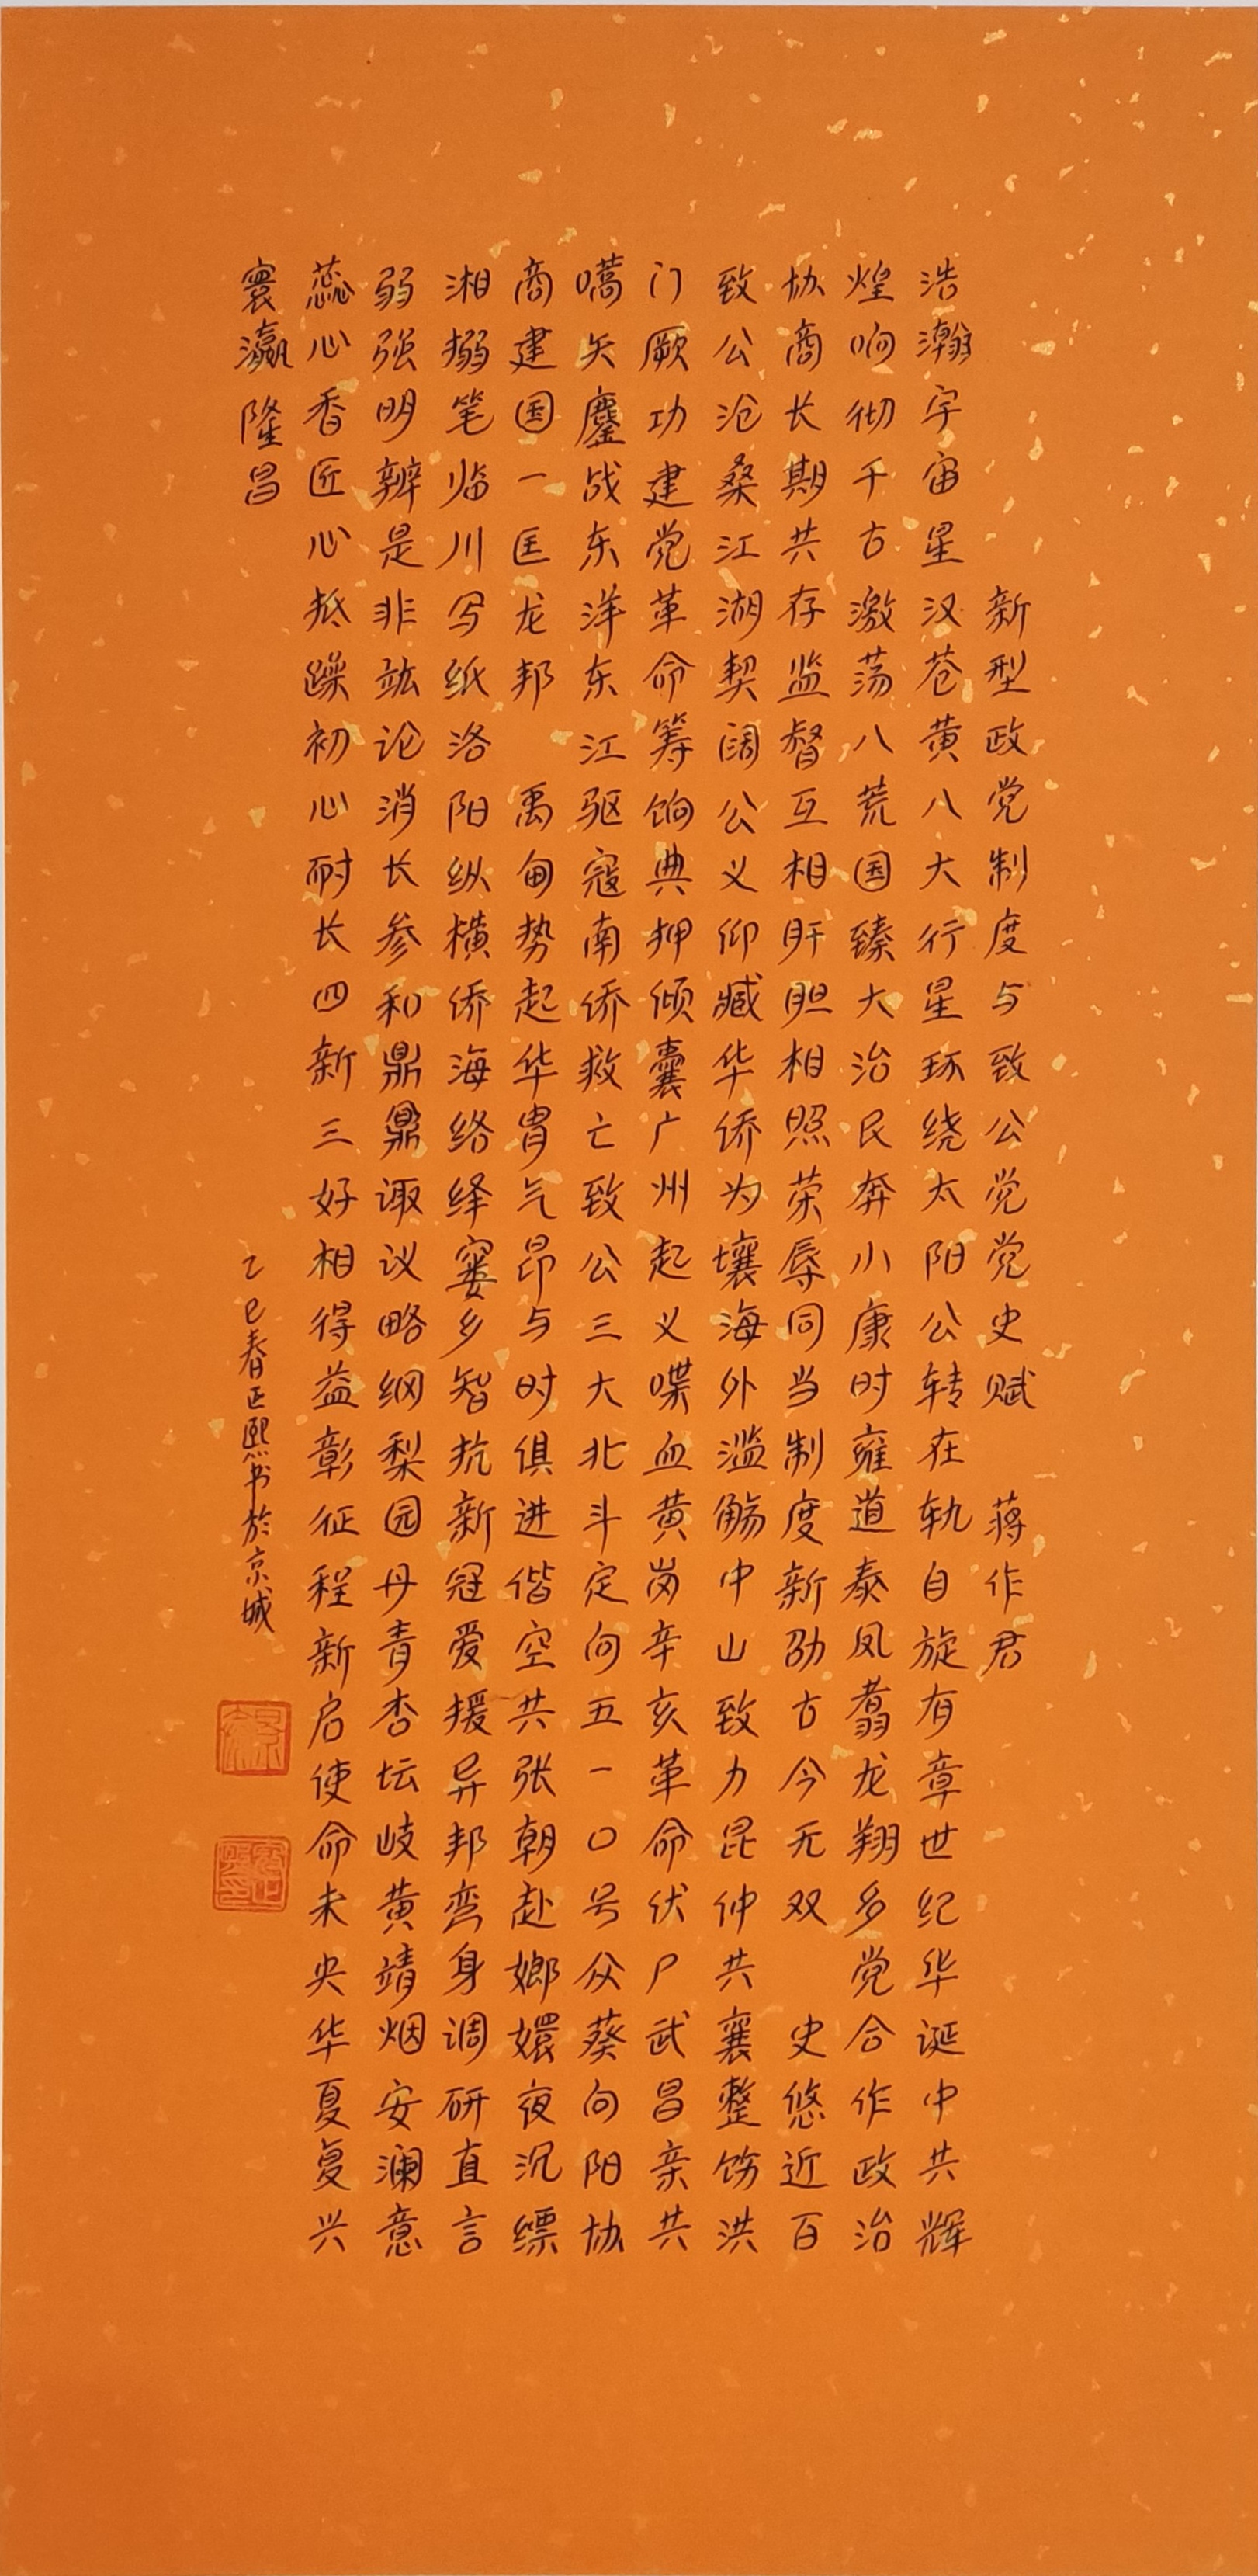 新型政党制度与致公党党史赋 蒋作君
浩瀚宇宙星汉苍黄八大行星环绕太阳公转在轨自旋有章世纪华诞中共辉
煌响彻千古激荡八荒国臻大治民奔小康时雍道泰凤翥龙翔多党合作政治
协商长期共存监督互相肝胆相照荣辱同当制度新劭古今无双 史悠近百
致公沧桑江湖契阔公义仰臧华侨为壤海外滥觞中山致力昆仲共襄整饬洪
门厥功建党革命筹饷典押倾囊广州起义喋血黄岗辛亥革命伏尸武昌亲共
嚆矢鏖战东洋东江驱寇南侨救亡致公三大北斗定向五一〇号众葵向阳协
商建国一匡龙邦 禹甸势起华胄气昂与时俱进偕空共张朝赴嫏嬛夜沉缥
湘搦笔临川写纸洛阳纵横侨海络绎寠乡智抗新冠爱援异邦弯身调研直言
弱强明辨是非竑论消长参和鼎鼐诹议略纲梨园丹青杏坛岐黄靖烟安澜意
蕊心香匠心抵躁初心耐长四新三好相得益彰征程新启使命未央华夏复兴
寰瀛隆昌
乙巳春 熙书於京城